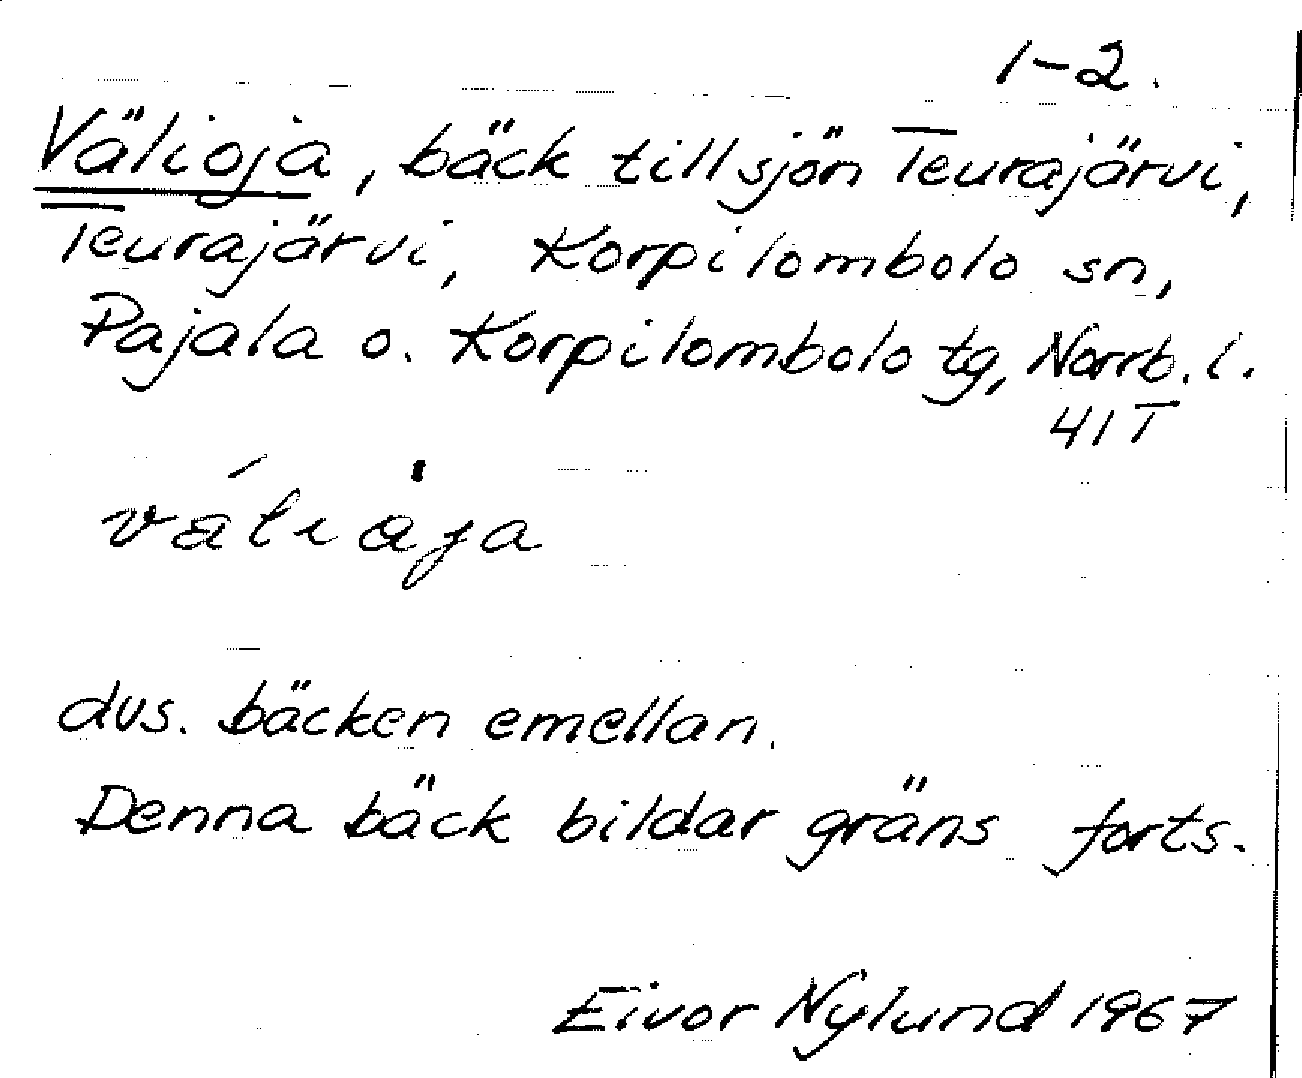 1-2.
Välioja, bäck till sjön Teurajärvi,
Teurajärvi, Korpilombolo sn,
Pajala o. Korpilombolo tg, Norrb. l.
41 T
dvs. bäcken emellan.
Denna bäck bildar gräns forts.
Eivor Nylund 1967